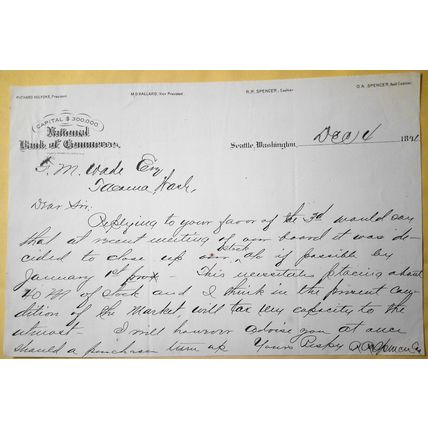 RICHARD HOLYOKE, President M.D. BALLARD, Vice President R.R. SPENCER, Cashier O.A. SPENCER, Asst Cashier
CAPITAL $300,000
National
Bank of Commerce.
Seattle, Washington, Dec 4 189
T. M. Wade Esq
Tacoma Wash.
Dear Sir.
Replying to your favor of the 3d would say
that at recent meeting of our board it was de-
cided to close up our stock, if possible by
January 1st prox - This necessitates placing about
40 M of stock and I think in the present con-
dition of the market will tax my capacity to the
utmost - I will however advise you at once
should a purchaser turn up Yours Respy R.R. Spencer